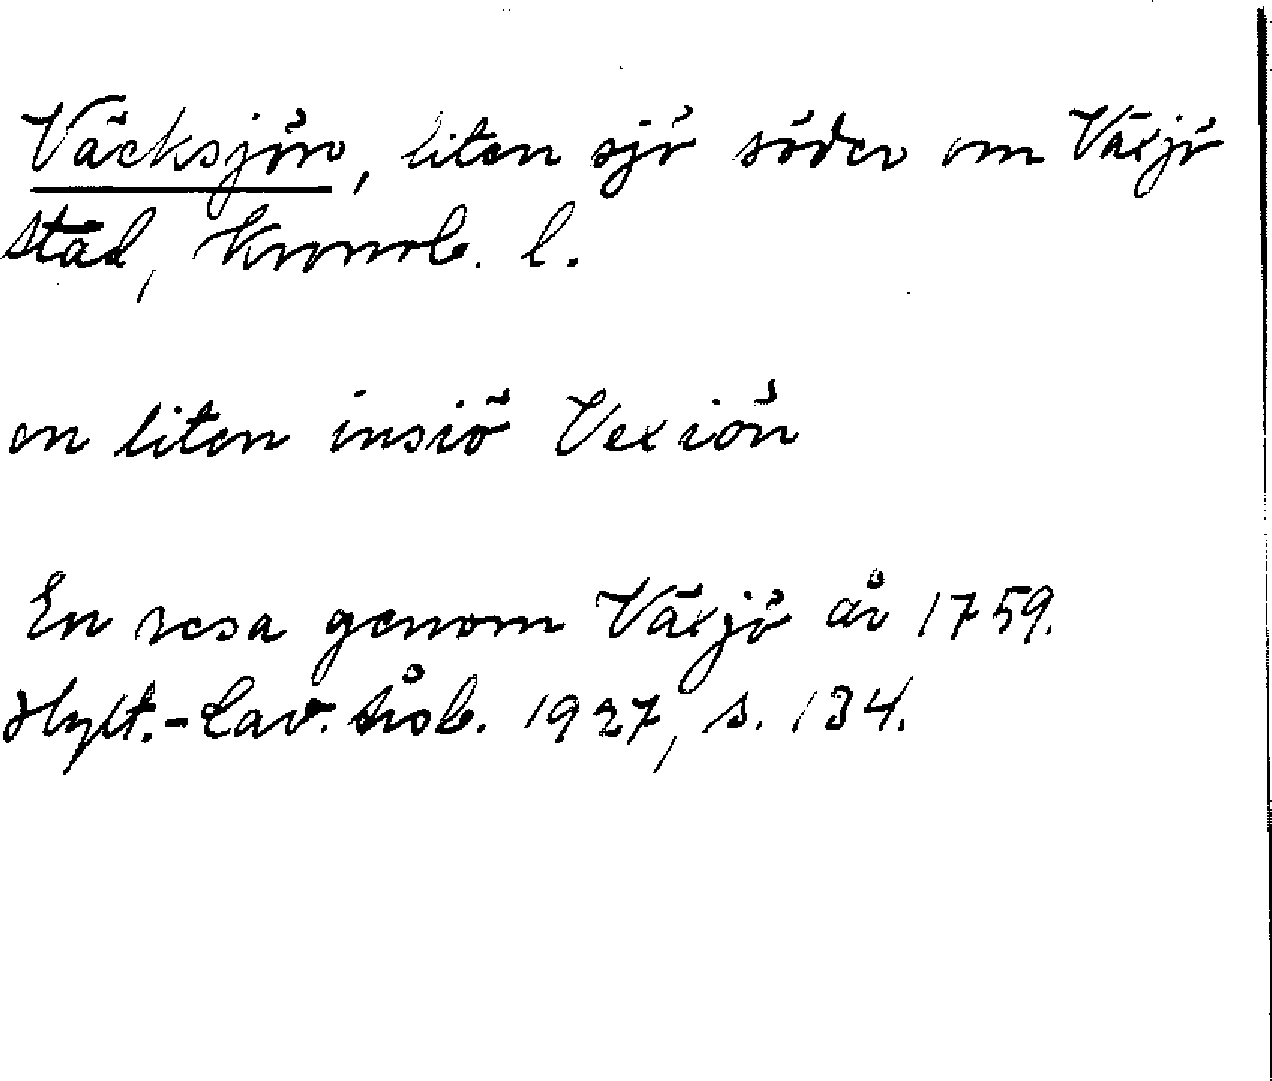 Växksjön, liten sjö söder om Växjö
stad, Kronob. l.
en liten insiö Vexiön
En resa genom Växjö år 1759.
Hylt.-Cav. årsb. 1927, s. 134.